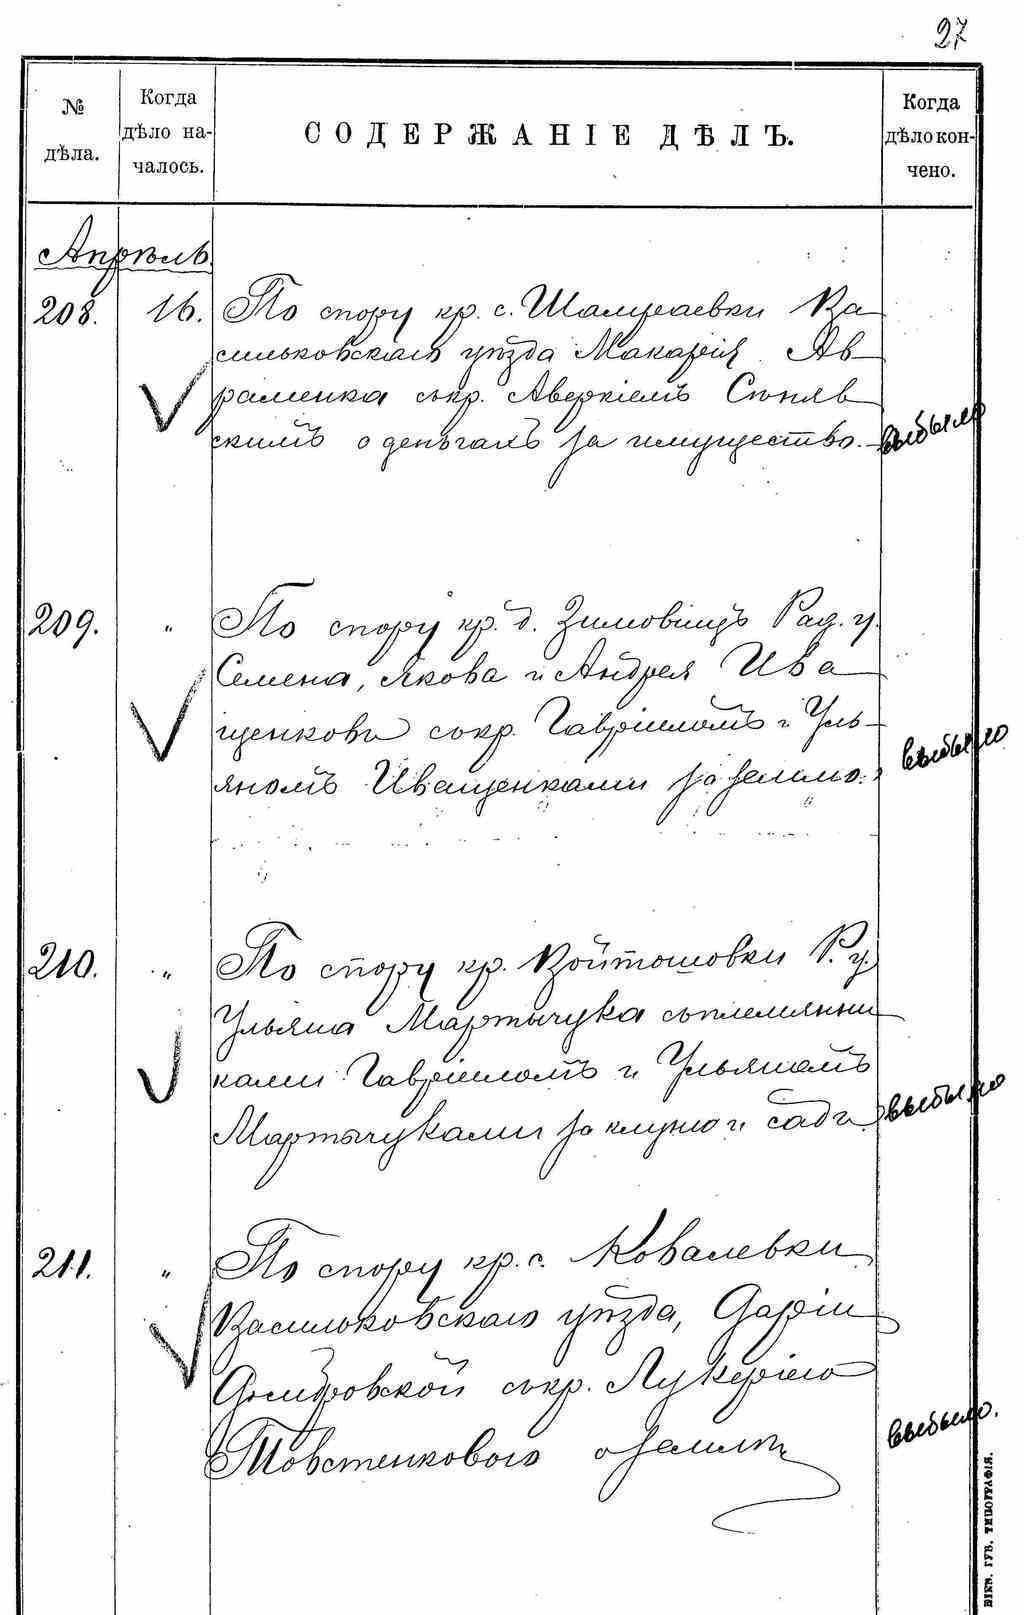 27
№ дѣла.
Когда дѣло на-чалось.
СОДЕРЖАНІЕ ДѢЛЪ.
Когда дѣло кон-чено.
Апрѣль
208. 16. По спору кр. с. Шамраевки Ва
сильковскаго уѣзда Макарія Ав
раменка съ кр. Аверкіемъ Синяв
скимъ о деньгахъ за имущество. выбыло
209. " По спору кр. д. Зимовищъ Рад. у.
Семена, Якова и Андрея Ива
щенковы съ кр. Гавріиломъ и Уль-
яномъ Иващенками за землю. выбыло
210. " По спору кр. Войтошовки Р. у.
Ульяна Мартычука съ племянни
ками Гавріиломъ и Ульяномъ
Мартычуками за клуню и садъ. выбыло
211. " По спору кр. с. Ковалевки
Васильковскаго уѣзда, Даріи
съ кр. Лукеріею
Товстенковою о землѣ выбыло.
КІЕВ. ГУБ. ТИПОГРАФІЯ.